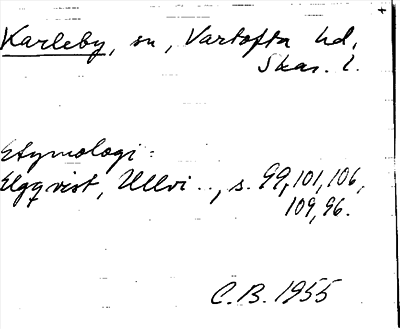 Karleby, sn, Vartofta hd,
Skar. l.
Etymologi:
Elgqvist, Ullvi.., s. 99, 101, 106,
109, 96.
C.B. 1955